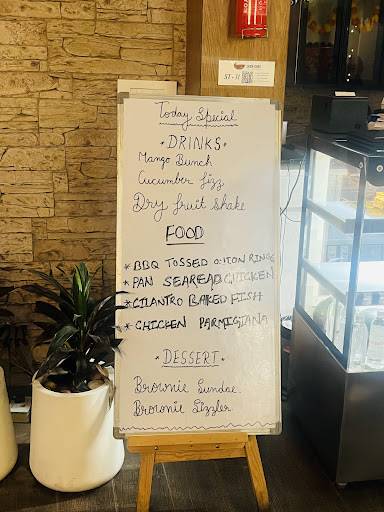 ST-11
Today Special
DRINKS
Mango Bunch
Cucumber Fizz
Dry fruit Shake
FOOD
* BBQ TOSSED ONION RINGS
* PAN SEAREAD CHICKEN
* CILANTRO BAKED FISH
* CHICKEN PARMIGIANA
DESSERT
Brownie Sundae
Brownie Sizzler